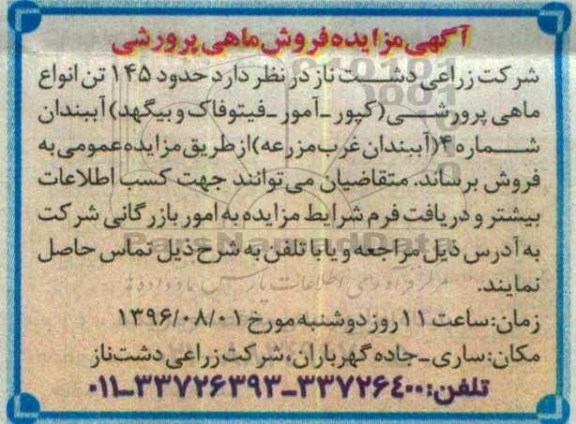 آگهی مزایده فروش ماهی پرورشی
شرکت زراعی دشت ناز در نظر دارد حدود ۱۴۵ تن انواع
ماهی پرورشی (کپور ـ آمور ـ فیتوفاک و بیگهد) آببندان
شماره ۴ (آببندان غرب مزرعه) از طریق مزایده عمومی به
فروش برساند. متقاضیان می توانند جهت کسب اطلاعات
بیشتر و دریافت فرم شرایط مزایده به امور بازرگانی شرکت
به آدرس ذیل مراجعه و یا با تلفن به شرح ذیل تماس حاصل
نمایند.
زمان: ساعت ۱۱ روز دوشنبه مورخ ۱۳۹۶/۰۸/۰۱
مکان: ساری ـ جاده گهرباران، شرکت زراعی دشت ناز
تلفن: ۳۳۷۲۶۴۰۰ ـ ۳۳۷۲۶۳۹۳ ـ ۰۱۱